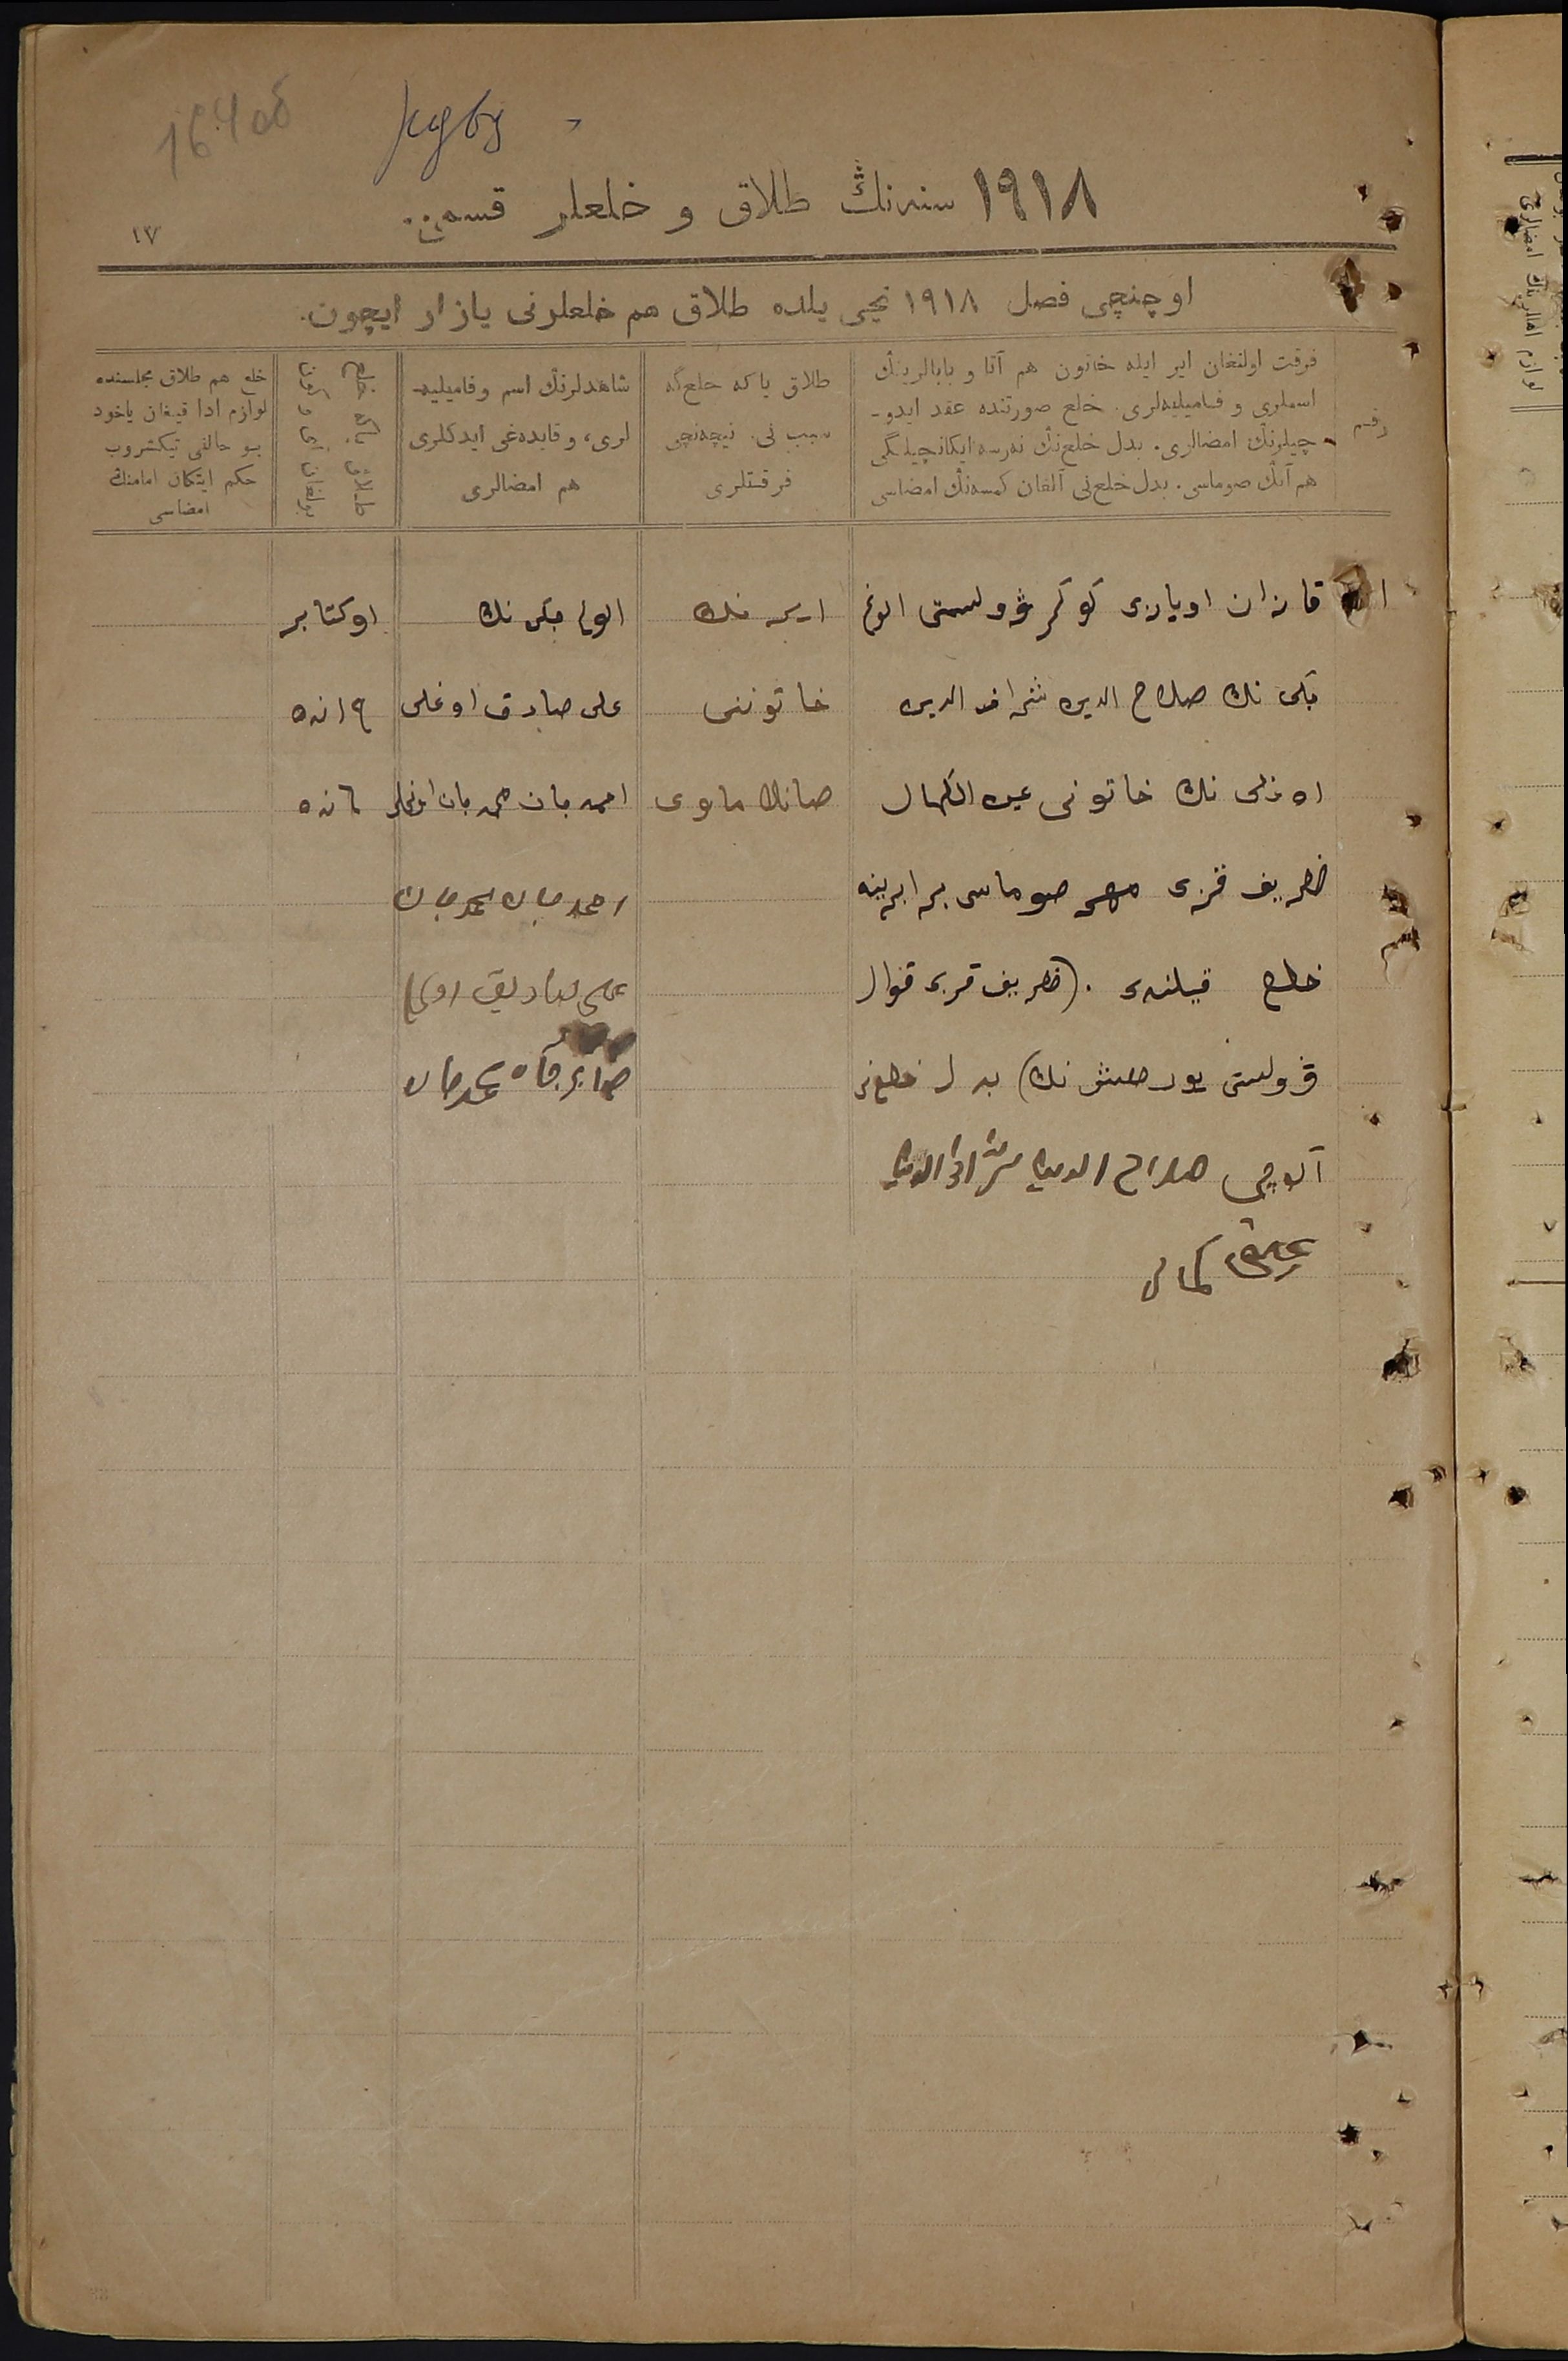 164об
١٩١٨ سنه‌نڭ طلاق و خلعلر قسمی.
١٧
اوچنچی فصل ١٩١٨ نچی یلده طلاق هم خلعلرنی یازار ایچون.
رقم
فرقت اولنغان ایر ایله خاتون هم آتا و بابالرینڭ
اسملری و فامیلیه‌لری. خلع صورتنده عقد ایدو-
چیلرنڭ امضالری. بدل خلع‌نڭ نه‌رسه ایکانچیلگی
هم آنڭ صوماسی. بدل خلع‌نی آلغان کمسه‌نڭ امضاسی
طلاق یا که خلع‌گه
سبب نی. نیچه‌نچی
فرقتلری
شاهدلرنڭ اسم و فامیلیه-
لری، و قایده‌غی ایدکلری
هم امضالری
طلاق یاکه خلع
بولغان آی و کون
خلع هم طلاق مجلسنده
لوازم ادا قیلغان یاخود
بو حالنی تیکشروب
حکم ایتکان امامنڭ
امضاسی
١ قازان اویازی کوکر ۋولستی الوغ
بکی نك صلاح الدین شراف الدین
اوغلی نك خاتونی عین الکمال
ظریف قزی مهر صوماسی برابرینه
خلع قیلندی. (ظریف قزی قوال
ۋولستی نك) بدل خلعنی
آلوچی صلاح الدین شراف الدین
عین کمال
ایرنك
خاتوننی
صانڭلاماوی
الوغ بکی نك
علی صادق اوغلی
احمدجان محمدجان اوغلی
احمدجان محمدجان
علی صادیق اوغلی
صابرجان محمدجان
اوکتابر
١٩ نده
٦ نده